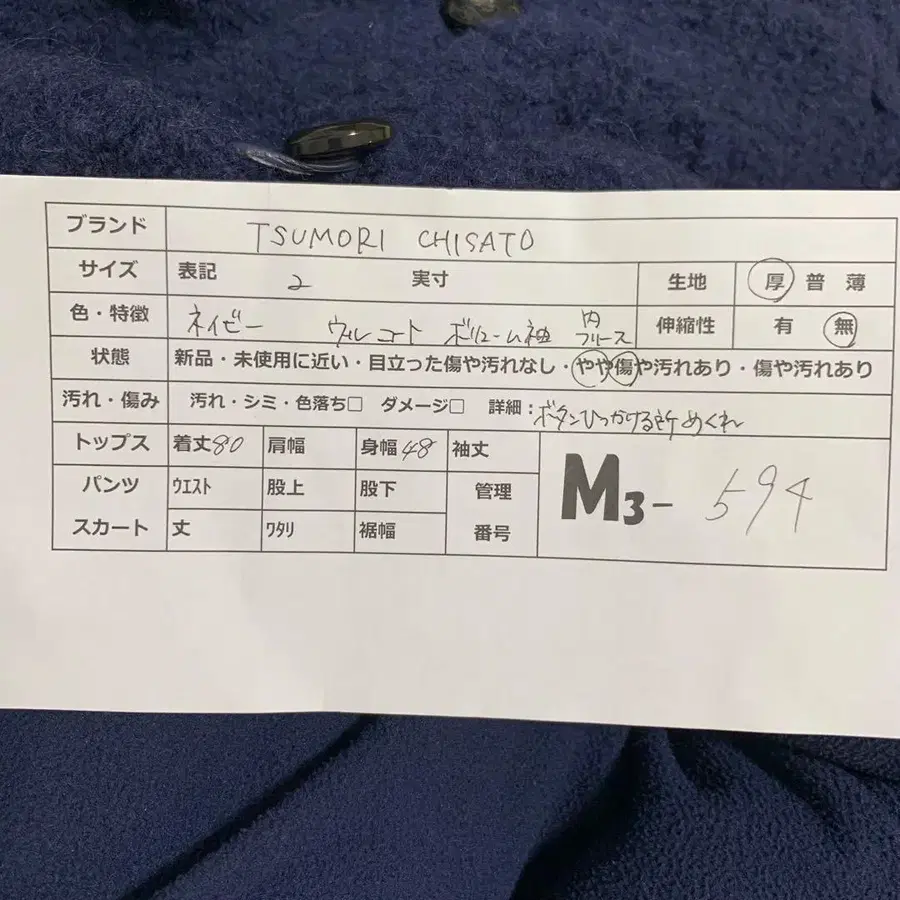 ブランド TSUMORI CHISATO
サイズ 表記 2 実寸 生地 厚 普 薄
色・特徴 ネイビー ウールコート ボリューム袖 内フリース 伸縮性 有 無
状態 新品・未使用に近い・目立った傷や汚れなし・やや傷や汚れあり・傷や汚れあり
汚れ・傷み 汚れ・シミ・色落ち□ ダメージ□ 詳細：ボタンひっかける所めくれ
トップス 着丈80 肩幅 身幅48 袖丈
パンツ ウエスト 股上 股下 管理 M3- 594
スカート 丈 ワタリ 裾幅 番号